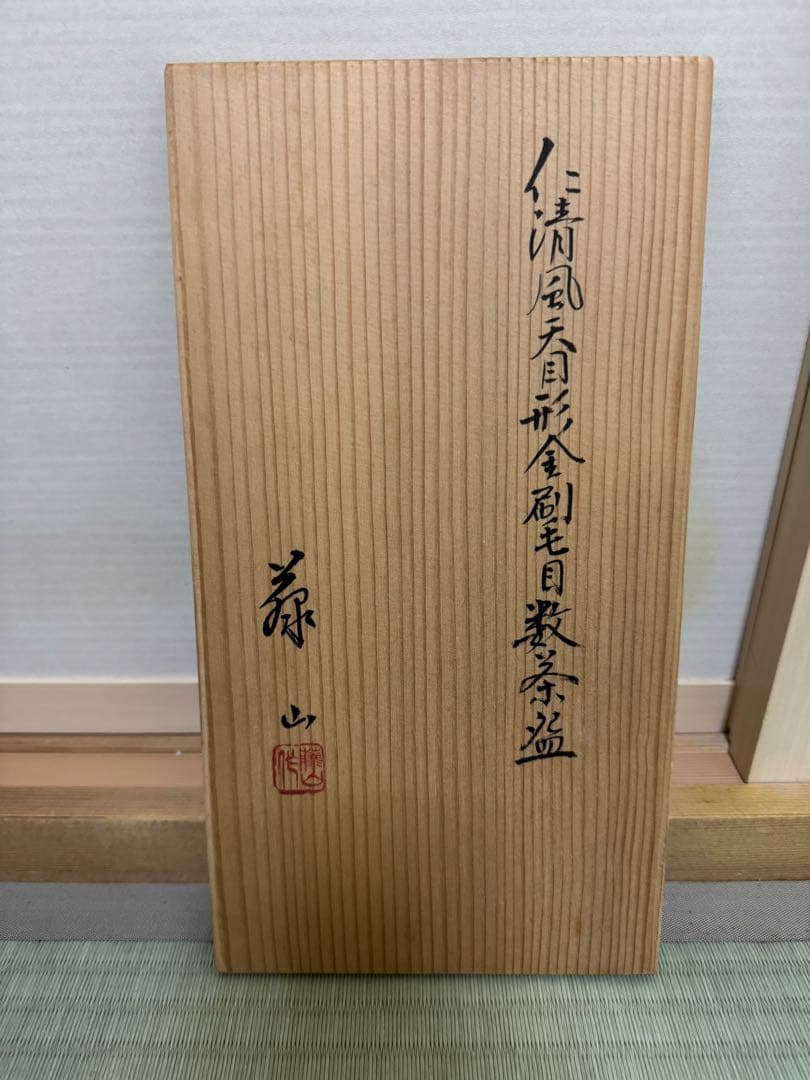 仁清風天目形金刷毛目数茶盌
藤山